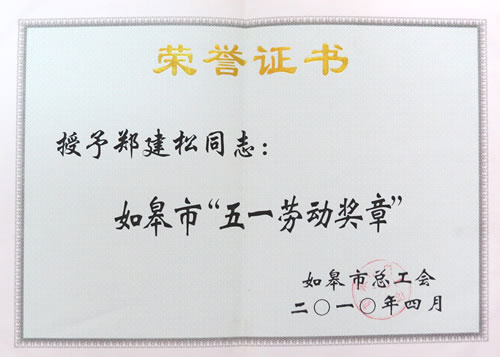 荣誉证书
授予郑建松同志：
如皋市“五一劳动奖章”
如皋市总工会
二〇一〇年四月